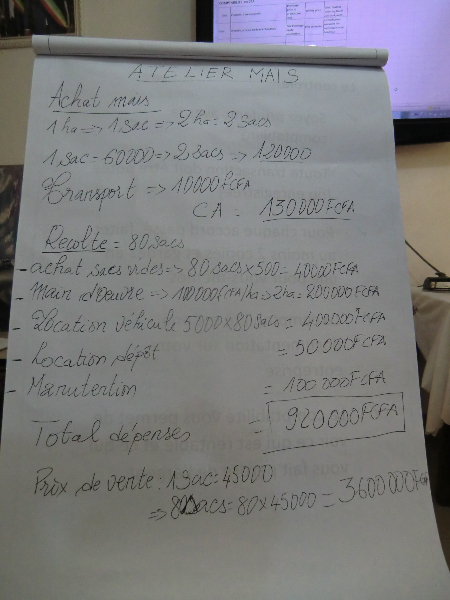 ATELIER MAIS
Achat mais
1 ha => 1 sac => 2 ha = 2 sacs
1 sac = 60000 => 2 sacs => 120000
Transport => 10000 FCFA
CA = 130000 FCFA
Recolte = 80 sacs
- achat sacs vides => 80 sacs x 500 = 40000 FCFA
- Main d'oeuvre => 100000 FCFA/ha => 2ha = 200000 FCFA
- Location véhicule 5000 x 80 sacs = 400000 FCFA
- Location dépôt = 50000 FCFA
- Manutention = 100000 FCFA
Total dépenses = 920000 FCFA
Prix de vente : 1 sac = 45000
=> 80 sacs = 80 x 45000 = 3600000 FCFA